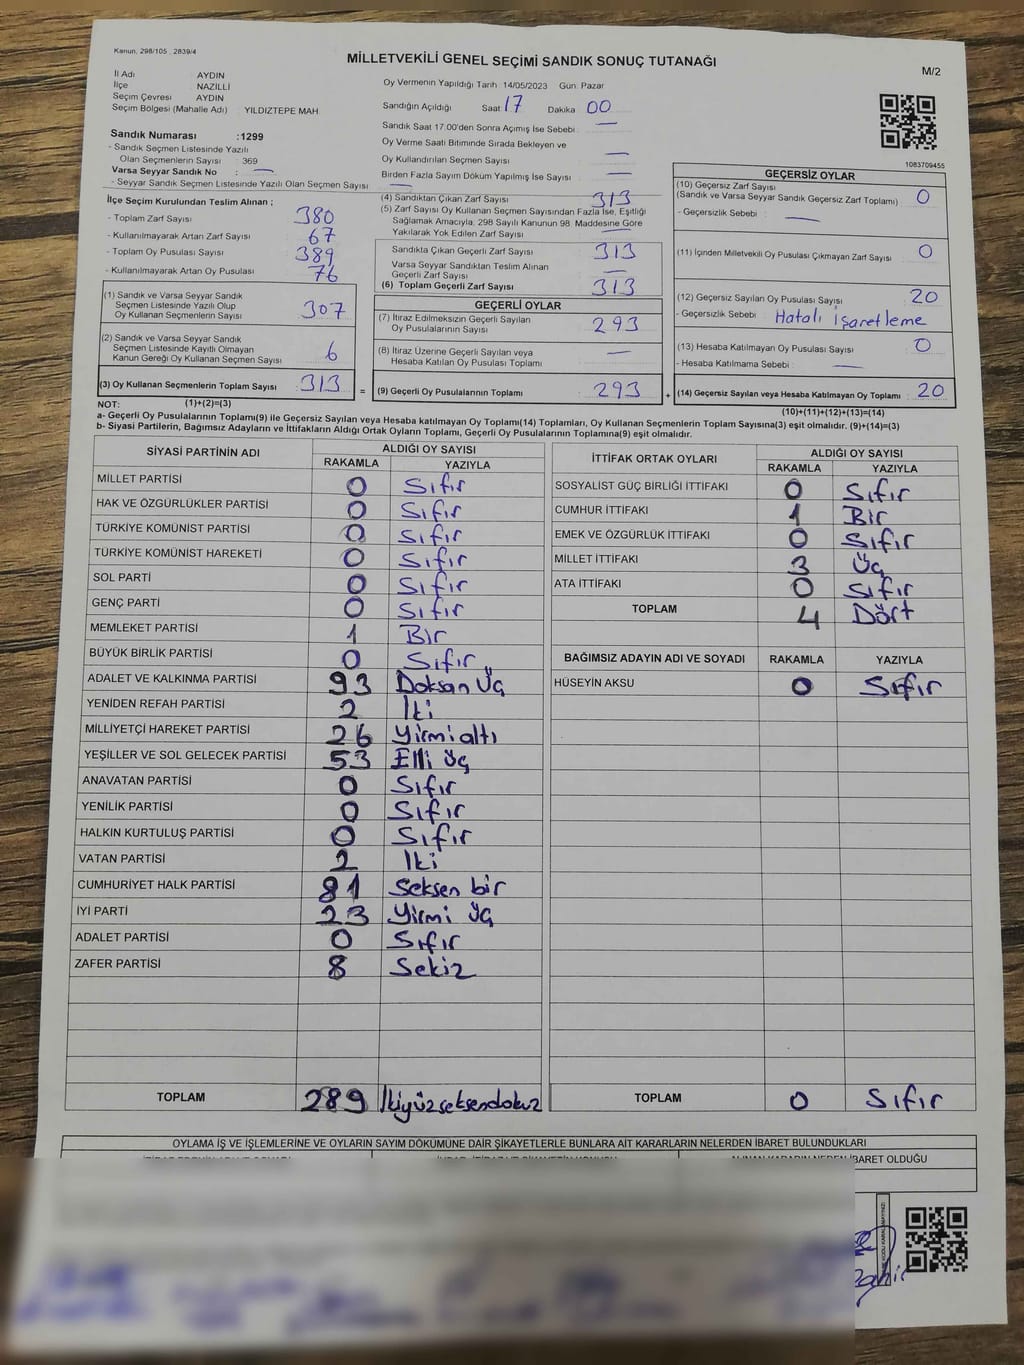 Kanun, 298/105 , 2839/4
MİLLETVEKİLİ GENEL SEÇİMİ SANDIK SONUÇ TUTANAĞI
M/2
İl Adı AYDIN
İlçe NAZİLLİ
Seçim Çevresi AYDIN
Seçim Bölgesi (Mahalle Adı) YILDIZTEPE MAH.
Sandık Numarası :1299
- Sandık Seçmen Listesinde Yazılı
Olan Seçmenlerin Sayısı : 369
Varsa Seyyar Sandık No : —
- Seyyar Sandık Seçmen Listesinde Yazılı Olan Seçmen Sayısı : —
İlçe Seçim Kurulundan Teslim Alınan ;
- Toplam Zarf Sayısı : 380
- Kullanılmayarak Artan Zarf Sayısı : 67
- Toplam Oy Pusulası Sayısı : 389
- Kullanılmayarak Artan Oy Pusulası : 76
(1) Sandık ve Varsa Seyyar Sandık
Seçmen Listesinde Yazılı Olup
Oy Kullanan Seçmenlerin Sayısı : 307
(2) Sandık ve Varsa Seyyar Sandık
Seçmen Listesinde Kayıtlı Olmayan
Kanun Gereği Oy Kullanan Seçmen Sayısı : 6
(3) Oy Kullanan Seçmenlerin Toplam Sayısı : 313 =
Oy Vermenin Yapıldığı Tarih : 14/05/2023 Gün: Pazar
Sandığın Açıldığı Saat 17 Dakika 00
Sandık Saat 17.00'den Sonra Açımış İse Sebebi : —
Oy Verme Saati Bitiminde Sırada Bekleyen ve
Oy Kullandırılan Seçmen Sayısı : —
Birden Fazla Sayım Döküm Yapılmış İse Sayısı : —
(4) Sandıktan Çıkan Zarf Sayısı : 313
(5) Zarf Sayısı Oy Kullanan Seçmen Sayısından Fazla İse, Eşitliği
Sağlamak Amacıyla, 298 Sayılı Kanunun 98. Maddesine Göre
Yakılarak Yok Edilen Zarf Sayısı : —
Sandıkta Çıkan Geçerli Zarf Sayısı : 313
Varsa Seyyar Sandıktan Teslim Alınan
Geçerli Zarf Sayısı : —
(6) Toplam Geçerli Zarf Sayısı : 313
GEÇERLİ OYLAR
(7) İtiraz Edilmeksizin Geçerli Sayılan
Oy Pusulalarının Sayısı : 293
(8) İtiraz Üzerine Geçerli Sayılan veya
Hesaba Katılan Oy Pusulası Toplamı : —
(9) Geçerli Oy Pusulalarının Toplamı : 293 +
1083709455
GEÇERSİZ OYLAR
(10) Geçersiz Zarf Sayısı
(Sandık ve Varsa Seyyar Sandık Geçersiz Zarf Toplamı) : 0
- Geçersizlik Sebebi : —
(11) İçinden Milletvekili Oy Pusulası Çıkmayan Zarf Sayısı : 0
(12) Geçersiz Sayılan Oy Pusulası Sayısı : 20
- Geçersizlik Sebebi : Hatalı işaretleme
(13) Hesaba Katılmayan Oy Pusulası Sayısı : 0
- Hesaba Katılmama Sebebi : —
(14) Geçersiz Sayılan veya Hesaba Katılmayan Oy Toplamı : 20
NOT: (1)+(2)=(3)
(10)+(11)+(12)+(13)=(14)
a- Geçerli Oy Pusulalarının Toplamı(9) ile Geçersiz Sayılan veya Hesaba katılmayan Oy Toplamı(14) Toplamları, Oy Kullanan Seçmenlerin Toplam Sayısına(3) eşit olmalıdır. (9)+(14)=(3)
b- Siyasi Partilerin, Bağımsız Adayların ve İttifakların Aldığı Ortak Oyların Toplamı, Geçerli Oy Pusulalarının Toplamına(9) eşit olmalıdır.
SİYASİ PARTİNİN ADI ALDIĞI OY SAYISI
RAKAMLA YAZIYLA
MİLLET PARTİSİ 0 Sıfır
HAK VE ÖZGÜRLÜKLER PARTİSİ 0 Sıfır
TÜRKİYE KOMÜNİST PARTİSİ 0 Sıfır
TÜRKİYE KOMÜNİST HAREKETİ 0 Sıfır
SOL PARTİ 0 Sıfır
GENÇ PARTİ 0 Sıfır
MEMLEKET PARTİSİ 1 Bir
BÜYÜK BİRLİK PARTİSİ 0 Sıfır
ADALET VE KALKINMA PARTİSİ 93 Doksan Üç
YENİDEN REFAH PARTİSİ 2 İki
MİLLİYETÇİ HAREKET PARTİSİ 26 Yirmi altı
YEŞİLLER VE SOL GELECEK PARTİSİ 53 Elli üç
ANAVATAN PARTİSİ 0 Sıfır
YENİLİK PARTİSİ 0 Sıfır
HALKIN KURTULUŞ PARTİSİ 0 Sıfır
VATAN PARTİSİ 2 İki
CUMHURİYET HALK PARTİSİ 81 Seksen bir
İYİ PARTİ 23 Yirmi üç
ADALET PARTİSİ 0 Sıfır
ZAFER PARTİSİ 8 Sekiz
TOPLAM 289 İkiyüzseksendokuz
İTTİFAK ORTAK OYLARI ALDIĞI OY SAYISI
RAKAMLA YAZIYLA
SOSYALİST GÜÇ BİRLİĞİ İTTİFAKI 0 Sıfır
CUMHUR İTTİFAKI 1 Bir
EMEK VE ÖZGÜRLÜK İTTİFAKI 0 Sıfır
MİLLET İTTİFAKI 3 Üç
ATA İTTİFAKI 0 Sıfır
TOPLAM 4 Dört
BAĞIMSIZ ADAYIN ADI VE SOYADI RAKAMLA YAZIYLA
HÜSEYİN AKSU 0 Sıfır
TOPLAM 0 Sıfır
OYLAMA İŞ VE İŞLEMLERİNE VE OYLARIN SAYIM DÖKÜMÜNE DAİR ŞİKAYETLERLE BUNLARA AİT KARARLARIN NELERDEN İBARET BULUNDUKLARI
ALINAN KARARIN NEDEN İBARET OLDUĞU